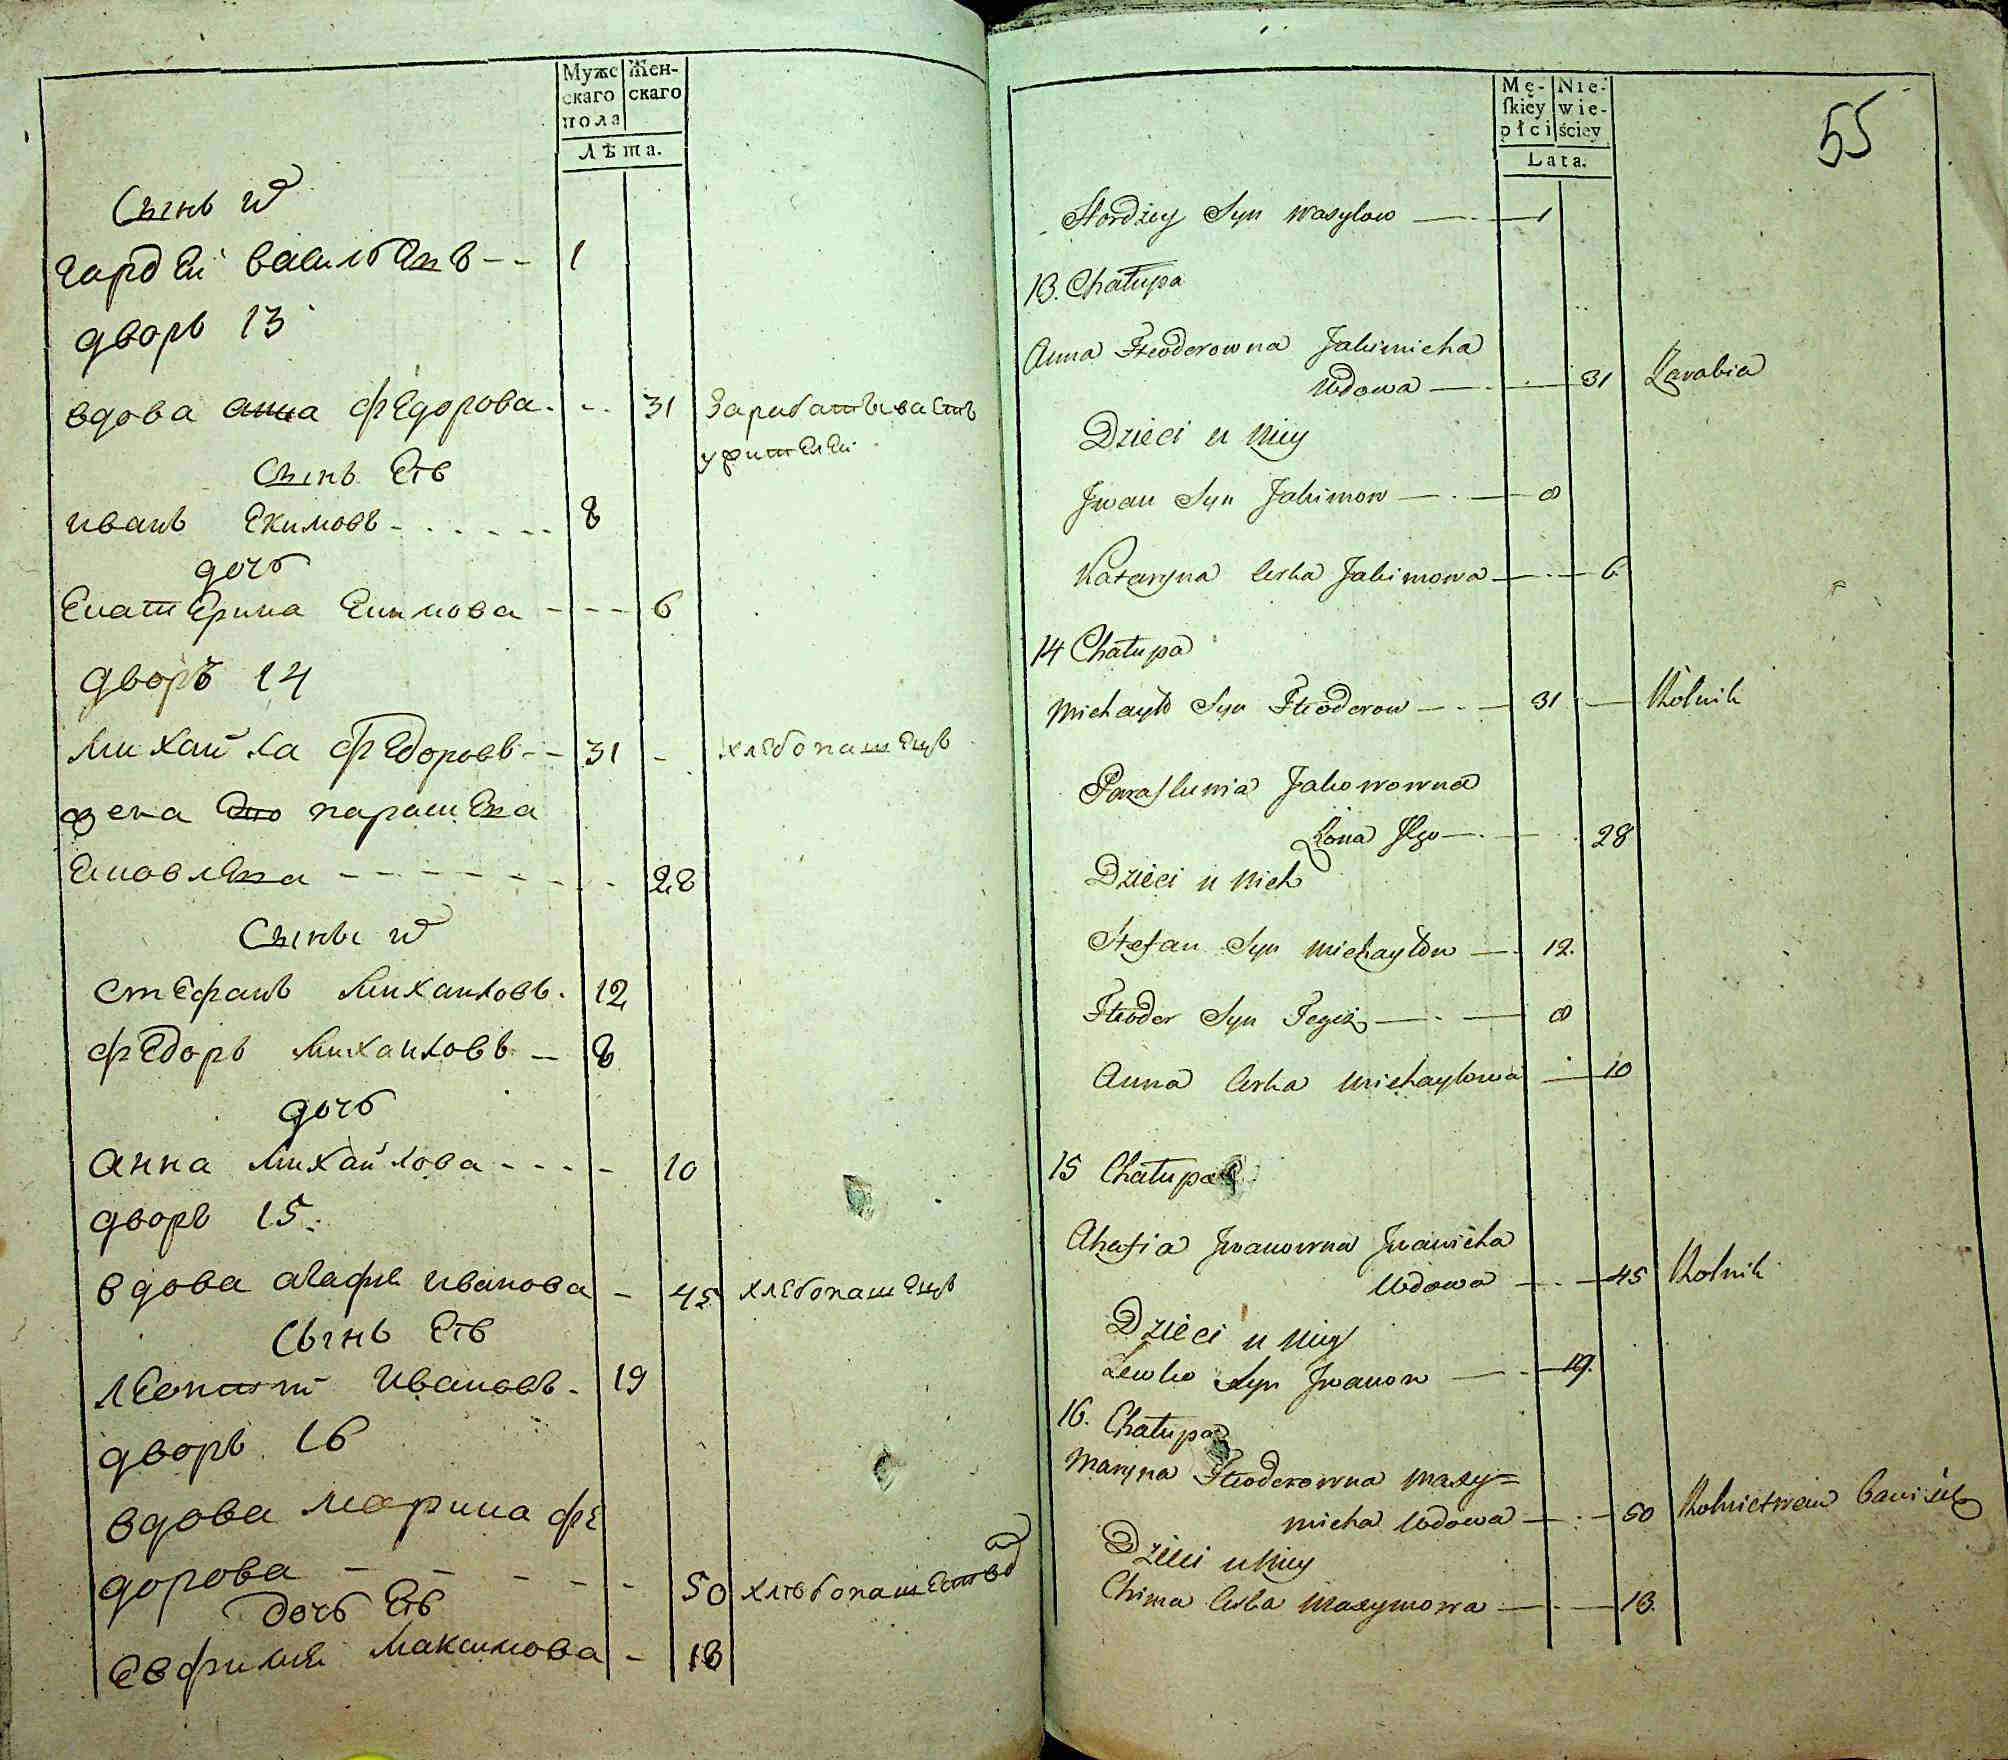 Мужс
скаго
пола
Жен-
скаго
Лѣта.
Сынъ
гардей васильевъ -- 1
дворъ 13
вдова анна федорова. -- 31 зарабатываетъ
Сынъ Ея
иванъ Екимовъ - - - - - - 8
дочь
Екатерина Екимова - - - - 6
дворъ 14
михайла федоровъ -- 31 - хлебопашецъ
жена Его
Ековлева - - - - - - - - 28
Сыны
стефанъ михайловъ. 12
федоръ михайловъ - 8
дочь
анна михайлова - - - - 10
дворъ 15.
вдова агафия иванова - 45 хлебопашецъ
Сынъ Ея
ивановъ. 19
дворъ 16
вдова марина фе
дорова - - - - - - 50
дочь Ея
Евфимия максимова - 13
Mę-
skiey
płci
Nie-
wie-
ściey
Lata.
55
Hordziey Syn Wasylow — . — 1
13. Chałupa
Anna Fteoderowna Jakimicha
Wdowa — . — 31 Zarabia
Dzieci u Niey
Jwan Syn Jakimow — . — 8
Kataryna Curka Jakimowa — . — 6
14 Chałupa
Michayło Syn Fteoderow — . — 31 — Rolnik
Jakowowna
Żona Jego — . — 28
Dzieci u Nich
Stefan Syn Michayłow — . 12.
Fteoder Syn Tegoż — . — 8
Anna Curka Michayłowa — 10
15 Chałupa
Ahafia Jwanowna Jwanicha
Wdowa — . — 45 Rolnik
Dzieci u Niey
Lewko Syn Jwanow — . — 19.
16. Chałupa
Maryna Fteoderowna Maxy=
micha Wdowa — . — 50 Rolnictwem bawi się
Dzieci u Niey
Chima Curka Maxymowa — . — 13.